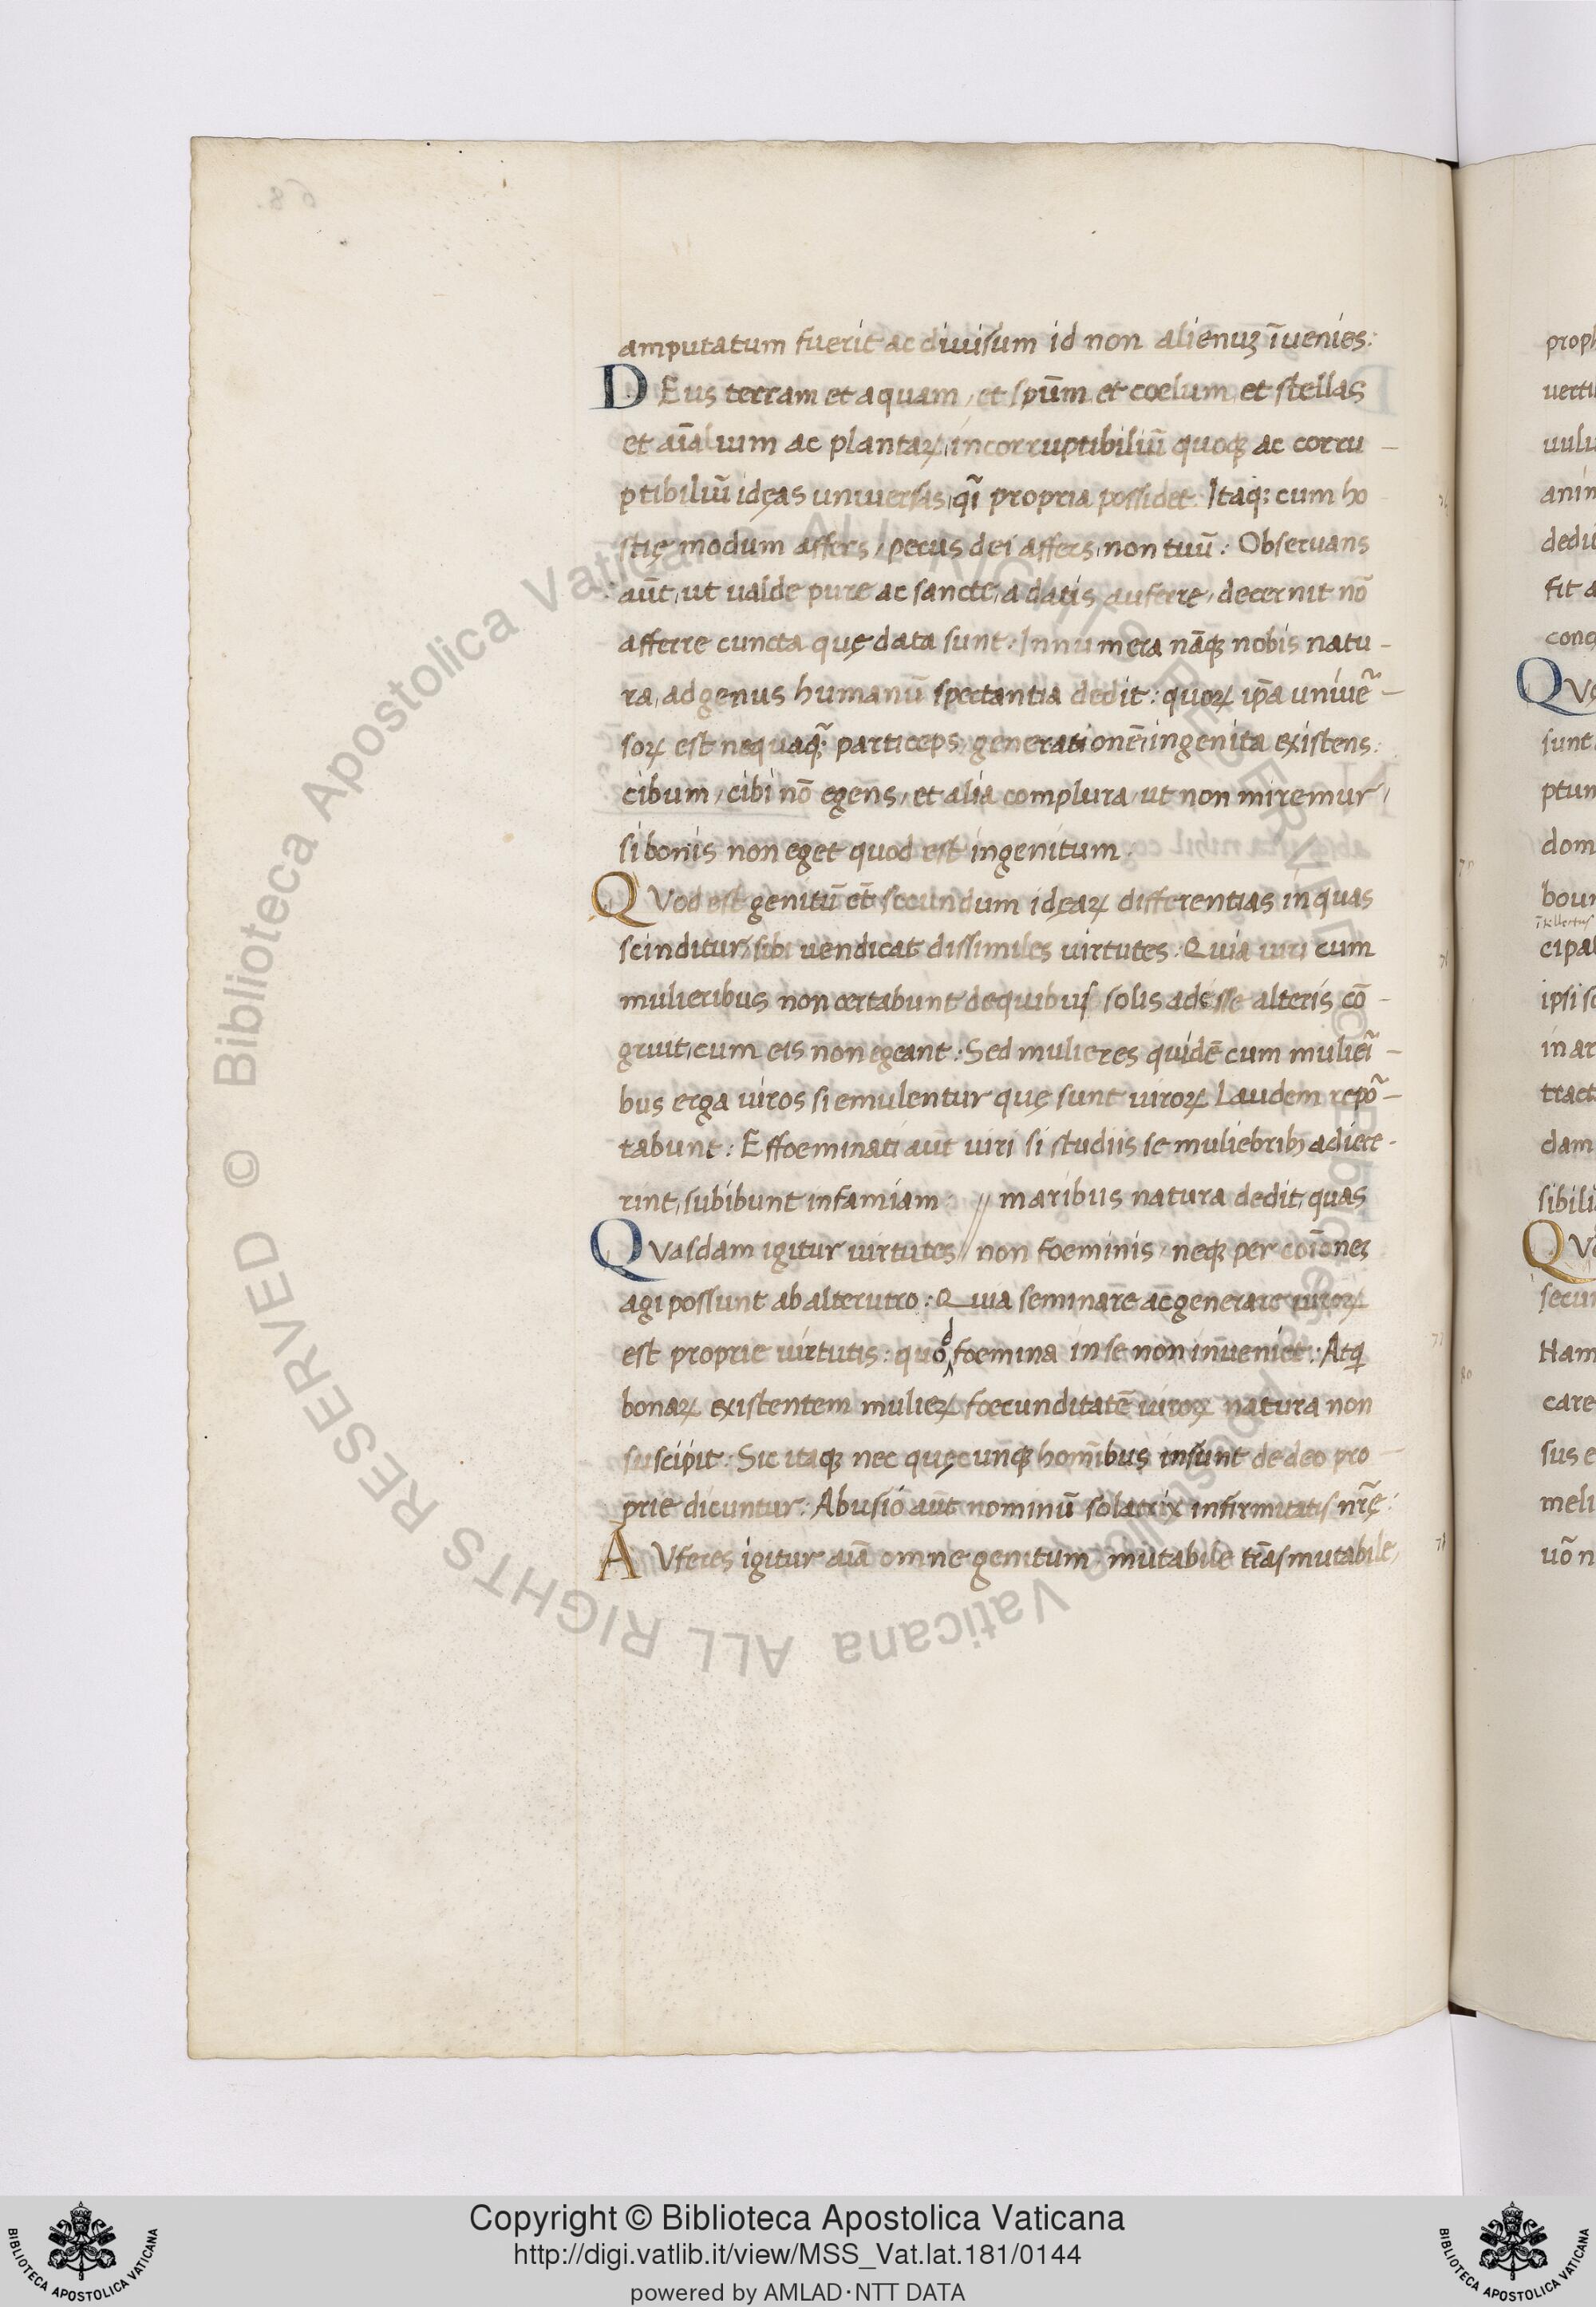 amputatum fuerit ac diuisum id non alienuꝫ ĩuenies:
DEus terram et aquam, et spũm et coelum et stellas
et aĩalium ac plantaꝝ, incorruptibiliũ quoqꝫ ac corru-
ptibiliũ idęas uniuersas, qĩ propria possidet. Itaqꝫ cum ho
stię modum affers, pecus dei affers, non tuũ: Obseruans
aũt, ut ualde pure ac sancte, a datis auferre, decernit nõ
afferre cuncta quę data sunt: Innumera nãqꝫ nobis natu-
ra, ad genus humanũ spectantia dedit: quoꝝ ip̃a uniuẽ-
soꝝ est nequaq̃ꝫ particeps, generationẽ, ingenita existens:
cibum, cibi nõ egens, et alia complura, ut non miremur,
si bonis non eget quod est ingenitum.
QVod est genitũ et̃ secundum idęaꝝ differentias in quas
scinditur, sibi uendicat dissimiles uirtutes: Quia uiri cum
mulieribus non certabunt de quibus solis adesse alteris cõ-
gruit, cum eis non egeant: Sed mulieres quidẽ cum muliẽi-
bus erga uiros si emulentur quę sunt uiroꝝ Laudem repõ-
tabunt: Effoeminati aũt uiri si studiis se muliebribꝫ adiece-
rint, subibunt infamiam: // maribus natura dedit, quas
QVasdam igitur uirtutes // non foeminis, neqꝫ per coĩoneꝫ
agi possunt ab alterutro: Quia seminare ac generare uiroꝝ
est proprie uirtutis: quod foemina in se non inueniet: Atqꝫ
bonaꝝ existentem mulieꝝ foecunditatẽ uiroꝝ natura non
suscipit: Sic itaqꝫ nec quęcunqꝫ homĩbus insunt de deo pro-
prie dicuntur: Abusio aũt nominũ solatrix infirmitatis nr̃ę:
AVferes igitur aĩa omne genitum mutabile trãsmutabile,
© Biblioteca Apostolica Vaticana ALL RIGHTS RESERVED
© Biblioteca Apostolica Vaticana ALL RIGHTS RESERVED
proph
uerti
uulu
anim
dedu
fit a
cong
sunt
ptum
dom
bour
cipal
ipsi s
in ar
tract
dam
sibili
secun
Ham
care
sus e
meli
uõ n
Copyright © Biblioteca Apostolica Vaticana
http://digi.vatlib.it/view/MSS_Vat.lat.181/0144
powered by AMLAD·NTT DATA
BIBLIOTECA APOSTOLICA VATICANA
BIBLIOTECA APOSTOLICA VATICANA